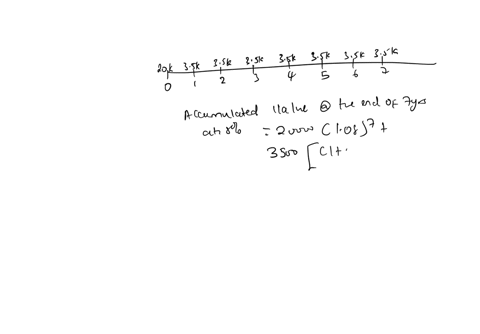 20k 3.5k 3.5k 3.5k 3.5k 3.5k 3.5k 3.5k
0 1 2 3 4 5 6 7
Accumulated Value @ the end of 7yrs
at 8% = 20000 (1.08)^7 +
3500 [ (1+